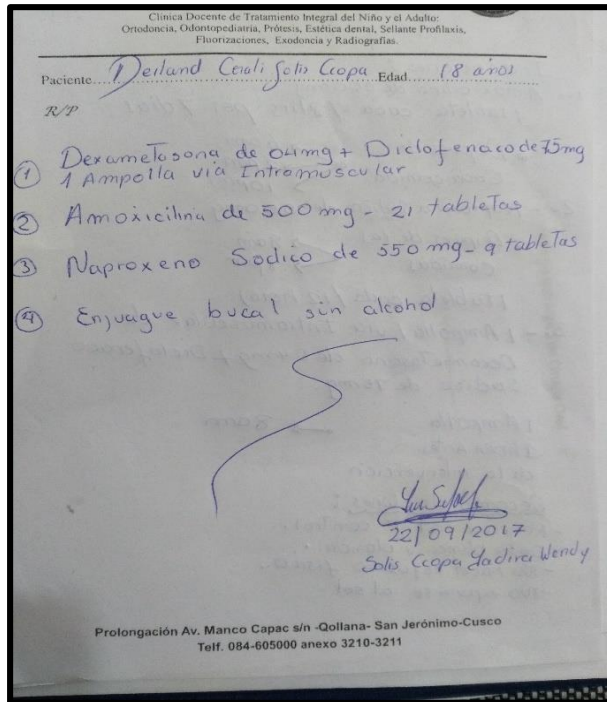 Clínica Docente de Tratamiento Integral del Niño y el Adulto:
Ortodoncia, Odontopediatría, Prótesis, Estética dental, Sellante Profilaxis,
Fluorizaciones, Exodoncia y Radiografías.
Paciente Solis Ccopa Edad 18 años
R/P
① Dexametosona de 04mg + Diclofenaco de 75mg
1 Ampolla via Intromuscular
② Amoxicilina de 500 mg - 21 tabletas
③ Naproxeno Sodico de 550 mg - 9 tabletas
④ Enjuague bucal sin alcohol
22/09/2017
Solis Ccopa Yadira Wendy
Prolongación Av. Manco Capac s/n -Qollana- San Jerónimo-Cusco
Telf. 084-605000 anexo 3210-3211